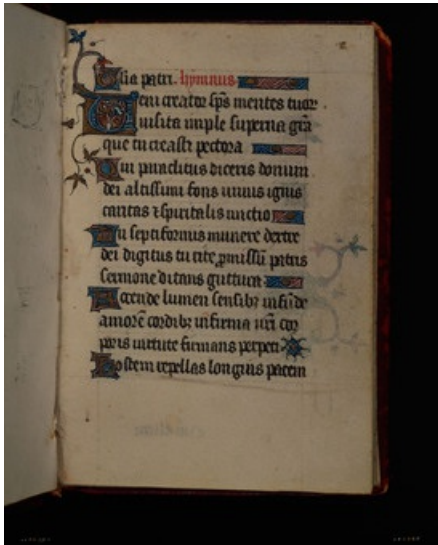 Glia patri. hymnus
Veni creator sps mentes tuor
uisita imple superna gra
que tu creasti pectora
Qui paraclitus diceris donum
dei altissimi fons uiuus ignis
caritas ⁊ spiritalis unctio
Tu septiformis munere dextre
dei digitus tu rite pmissu patris
sermone ditans guttura
Accende lumen sensibz infude
amorē cordibz infirma nri cor
poris uirtute firmans perpeti
Hostem repellas longius pacem